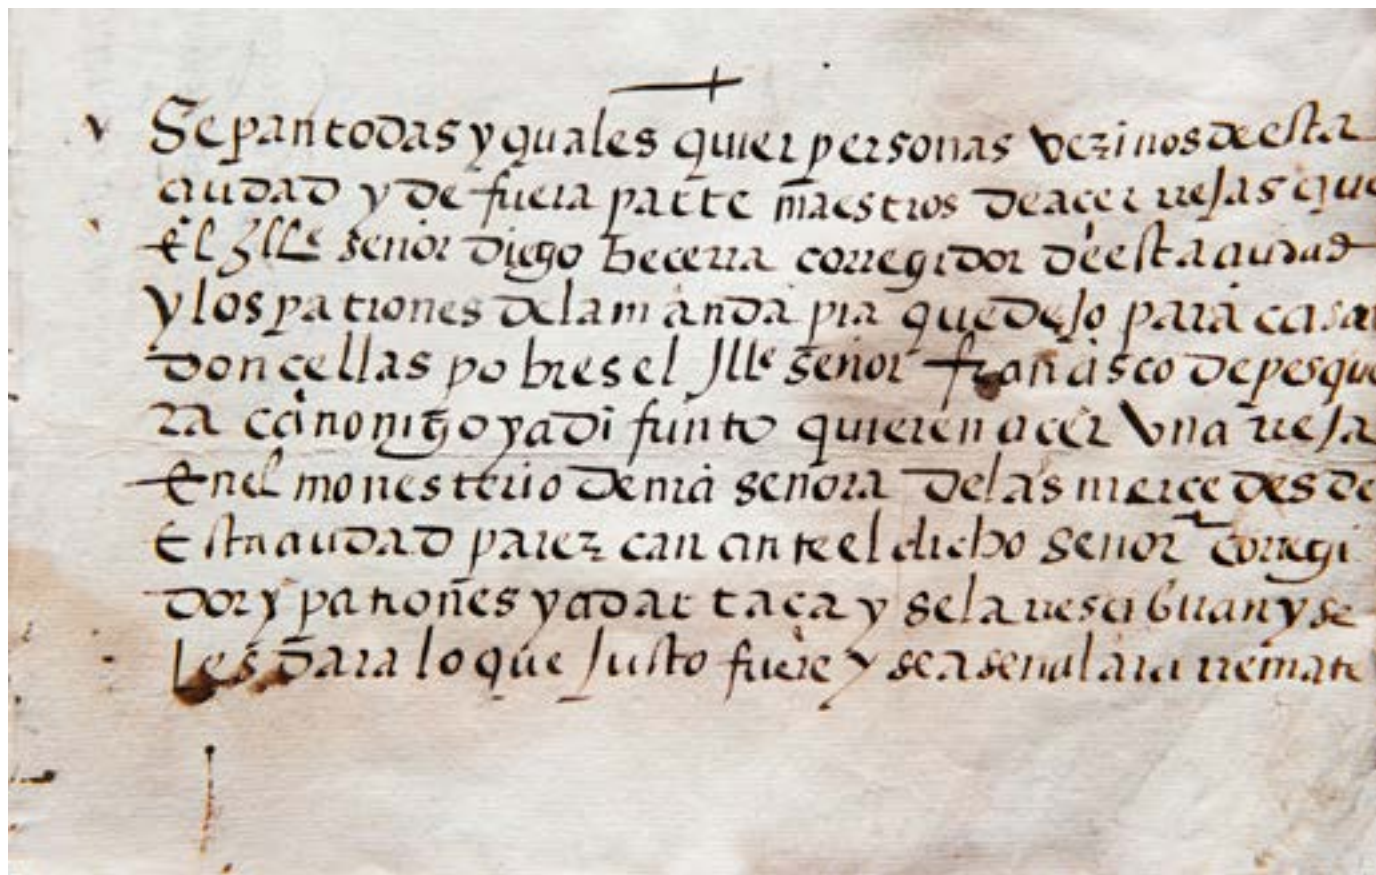 Sepan todas y quales quier personas vezinos de esta
ciudad y de fuera parte maestros de açer rrejas que
el Ylle señor diego becerra corregidor de esta ciudad
y los patrones de la manda pia que dejo para casar
donçellas pobres el Ille señor françisco de pesque
ra canonigo ya difunto quieren açer una rreja
en el monesterio de nra señora de las merçedes de
esta ciudad parezcan ante el dicho señor corregi
dor y patrones y a dar traça y se la rresçibiran y se
les dara lo que justo fuere y se a señalara rremate